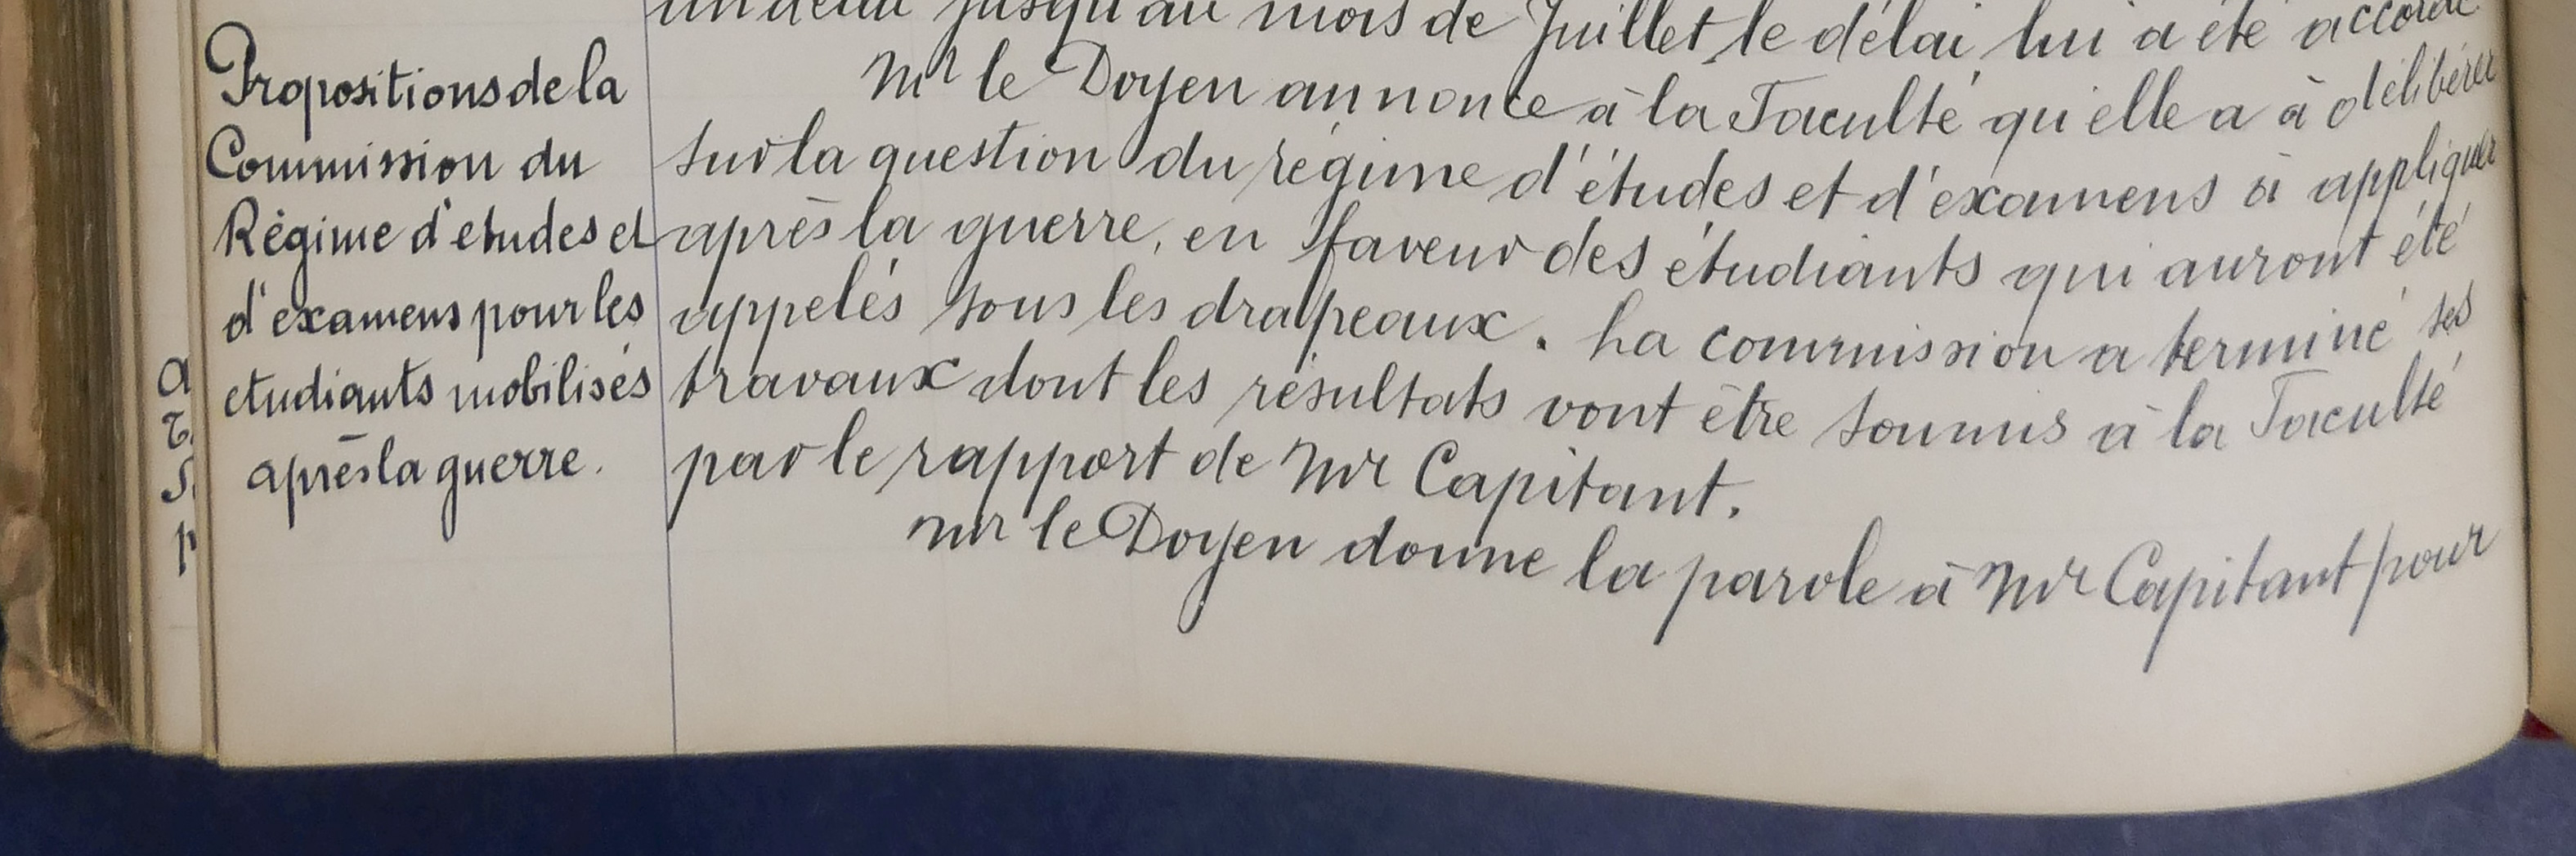 Propositions de la
Commission du
Régime d'etudes et
d'examens pour les
etudiants mobilisés
après la guerre.
un délai jusqu'au mois de Juillet, le délai lui a été accordé
Mr le Doyen annonce à la Faculté qu'elle a à délibérer
sur la question du régime d'études et d'examens à appliquer
après la guerre, en faveur des étudiants qui auront été
appelés sous les drapeaux. La commission a terminé ses
travaux dont les résultats vont être soumis à la Faculté
par le rapport de Mr Capitant.
Mr le Doyen donne la parole à Mr Capitant pour